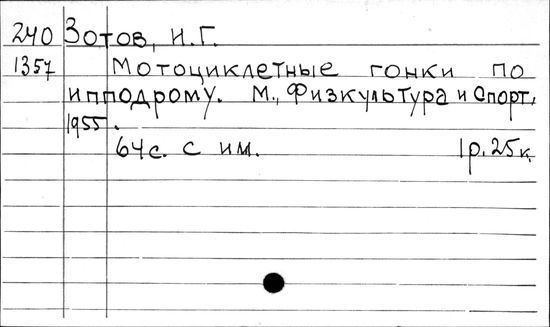 240 Зотов, И.Г.
1357 Мотоциклетные гонки по
ипподрому. М., Физкультура и спорт,
1955.
64с. с им. 1р.25к.